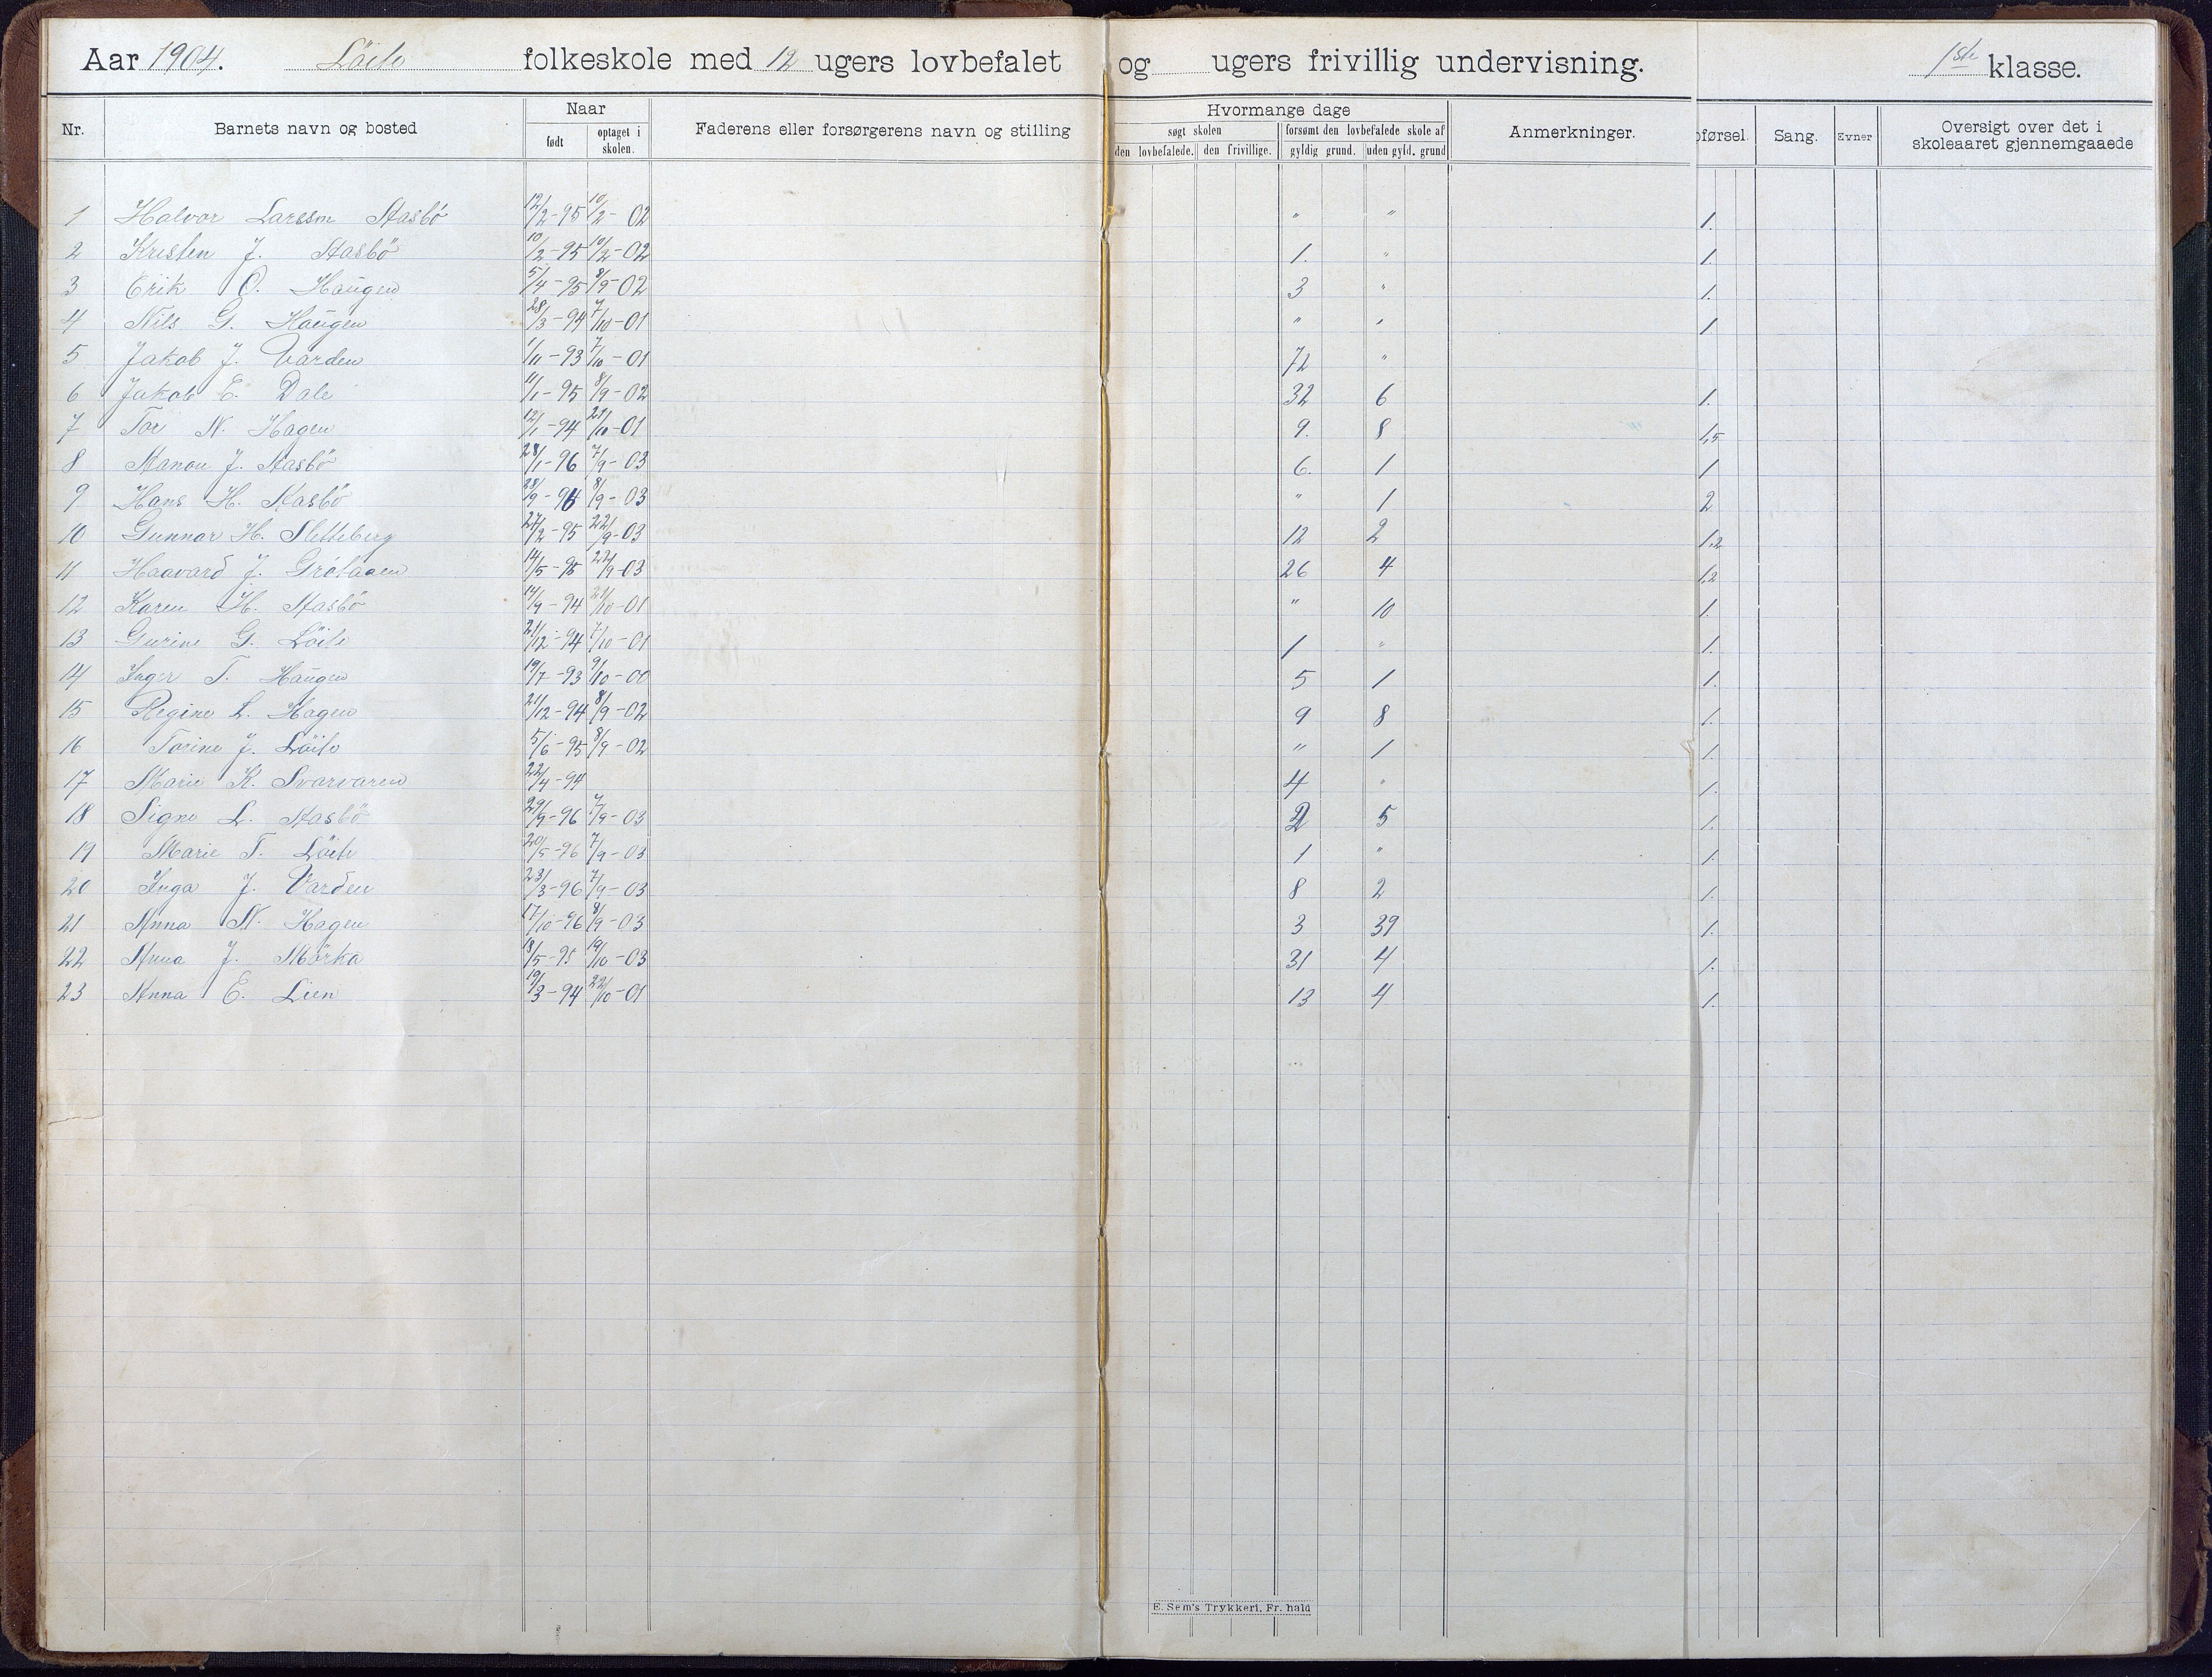 Aar 1904. Löite folkeskole med 12 ugers lovbefalet og ugers frivillig undervisning. 1ste klasse.
Nr. Barnets navn og bosted Naar født optaget i skolen. Faderens eller forsørgerens navn og stilling Hvormange dage søgt skolen den lovbefalede. den frivillige. forsømt den lovbefalede skole af gyldig grund. uden gyld. grund Anmerkninger. pførsel. Sang. Evner Oversigt over det i skoleaaret gjennemgaaede
1 Halvor Larssen Stasbö 12/2-95 10/2-02 " " 1.
2 Kristen J. Stasbö 10/2-95 10/2-02 1. " 1.
3 Erik O. Haugen 5/4-95 8/9-02 3 " 1.
4 Nils G. Haugen 28/3-94 7/10-01 " " 1
5 Jakob J. Varden 1/11-93 7/10-01 72 "
6 Jakob E. Dale 11/1-95 8/9-02 32 6 1.
7 Tor N. Hagen 12/1-94 21/10-01 9. 8 1,5
8 J. Stasbö 28/1-96 7/9-03 6. 1 1
9 Hans H. Stasbö 28/9-94 8/9-03 " 1 2
10 Gunnar H. Sletteberg 27/2-95 22/9-03 12 2 1,2
11 Haavard J. Grötaaen 14/5-95 22/9-03 26 4 1,2
12 Karen H. Stasbö 14/9-94 21/10-01 " 10 1.
13 Gurine G. Löite 21/12-94 7/10-01 1 " 1.
14 Inger T. Haugen 19/7-93 9/10-00 5 1 1.
15 Regine L. Hagen 21/12-94 8/9-02 9 8 1.
16 Torine J. Löite 5/6-95 8/9-02 " 1 1.
17 Marie K. Svarvaren 22/4-94 4 " 1.
18 Signe L. Stasbö 29/9-96 7/9-03 2 5 1.
19 Marie T. Löite 20/5-96 7/9-03 1 " 1.
20 Inga J. Varden 23/3-96 7/9-03 8 2 1.
21 Anna N. Hagen 17/10-96 8/9-03 3 39 1.
22 Anna J. Mörka 18/5-95 19/10-03 31 4 1.
23 Anna E. Lien 19/3-94 22/10-01 13 4 1.
E. Sem's Trykkeri, Fr. hald